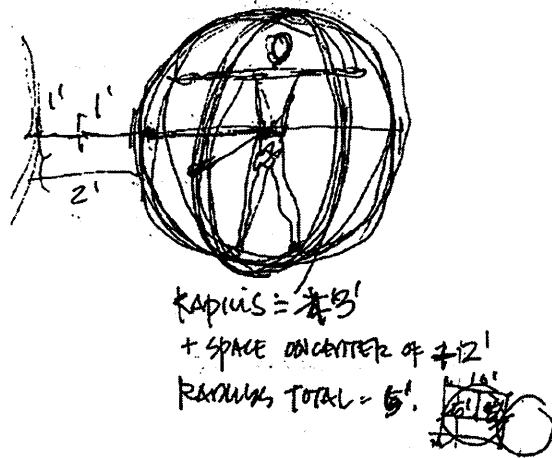 1' 1'
2'
RADIUS = 3'
+ SPACE ON CENTER OF 2'
RADIUS TOTAL = 5'.
10'
5' 5'